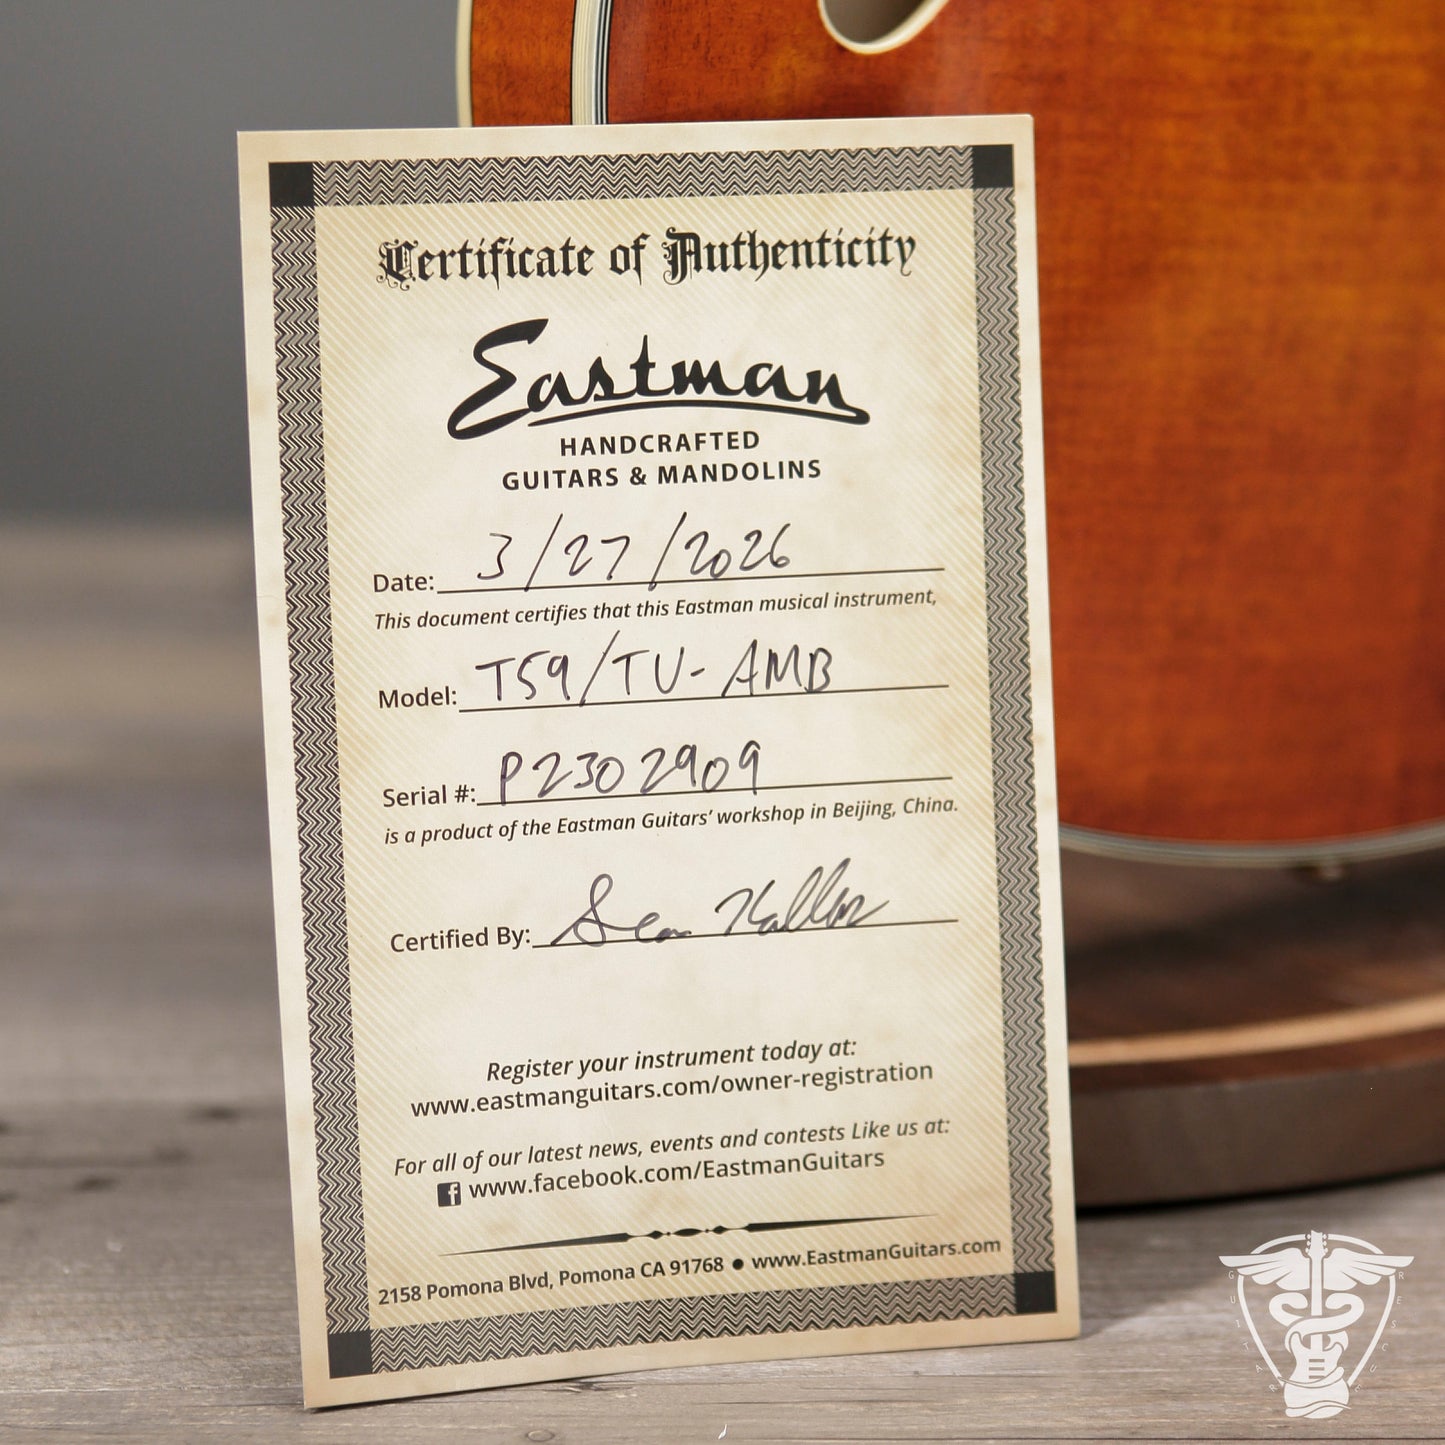 Certificate of Authenticity
Eastman
HANDCRAFTED
GUITARS & MANDOLINS
Date: 3/27/2026
This document certifies that this Eastman musical instrument,
Model: T59/TV-AMB
Serial #: P2302909
is a product of the Eastman Guitars' workshop in Beijing, China.
Certified By: Sean
Register your instrument today at:
www.eastmanguitars.com/owner-registration
For all of our latest news, events and contests Like us at:
f www.facebook.com/EastmanGuitars
2158 Pomona Blvd, Pomona CA 91768 ● www.EastmanGuitars.com
GUITAR RESCUE